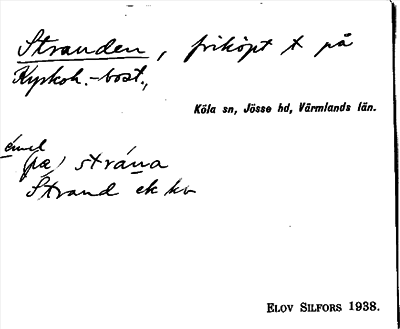 Stranden, friköpt t på
Kyrkoh.-bost.,
Köla sn, Jösse hd, Värmlands län.
(pœ) strána
Strand ek kv
ELOV SILFORS 1938.